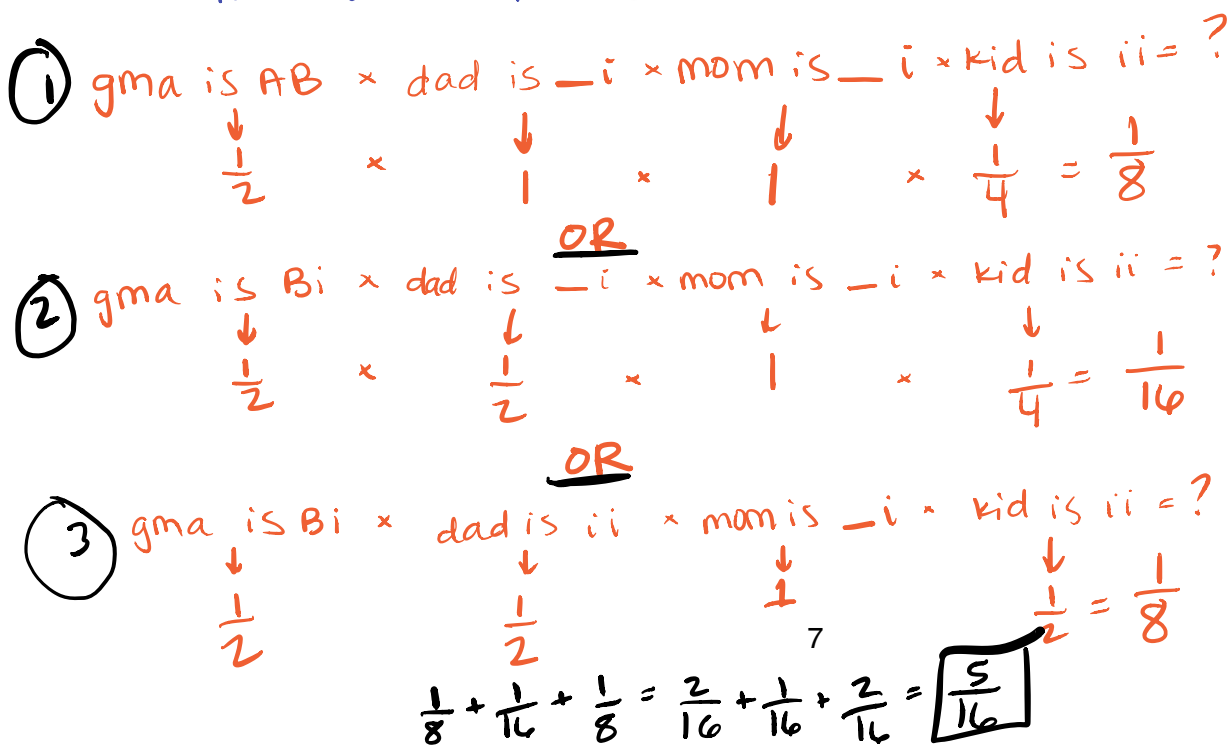 ① gma is AB × dad is _i × mom is _ i × kid is ii = ?
↓ ↓ ↓ ↓
1/2 × 1 × 1 × 1/4 = 1/8
OR
② gma is Bi × dad is _i × mom is _i × kid is ii = ?
↓ ↓ ↓ ↓
1/2 × 1/2 × 1 × 1/4 = 1/16
OR
③ gma is Bi × dad is ii × mom is _i × kid is ii = ?
↓ ↓ ↓ ↓
1/2 1/2 1 1/2 = 1/8
7
1/8 + 1/16 + 1/8 = 2/16 + 1/16 + 2/16 = 5/16